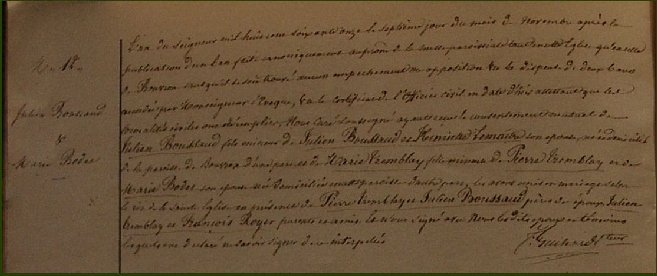 M. 18
Julien Boussaud
&
Marie Bodet
L'an du Seigneur mil huit cent soixante onze le septième jour du mois de Novembre après la
publication d'un ban faite canoniquement au prône de la messe paroissiale tant en cette Église qu'en celle
de Bouvron sans qu'il se soit trouvé aucun empêchement ni opposition vu la dispense de deux bans
accordée par Monseigneur l'Evêque, vu le certificat de l'Officier civil en date d'hier attestant que les
formalités civiles ont été remplies, Nous Curé soussigné ayant reçu le consentement mutuel de
Julien Boussaud fils mineur de Julien Boussaud et Henriette son épouse,
de la paroisse de Bouvron d'une part et de Marie Tremblay fille mineure de Pierre Tremblay et de
Marie Bodet son épouse domiciliés en cette paroisse d'autre part, les avons unis en mariage selon
le rit de la Sainte Eglise en présence de Pierre Tremblay et Julien Boussaud pères des époux Julien
Tremblay et François Royer parents et amis. Et nous signé avec nous les dits époux et témoins
lesquels ont déclaré ne savoir signer de ce interpellés